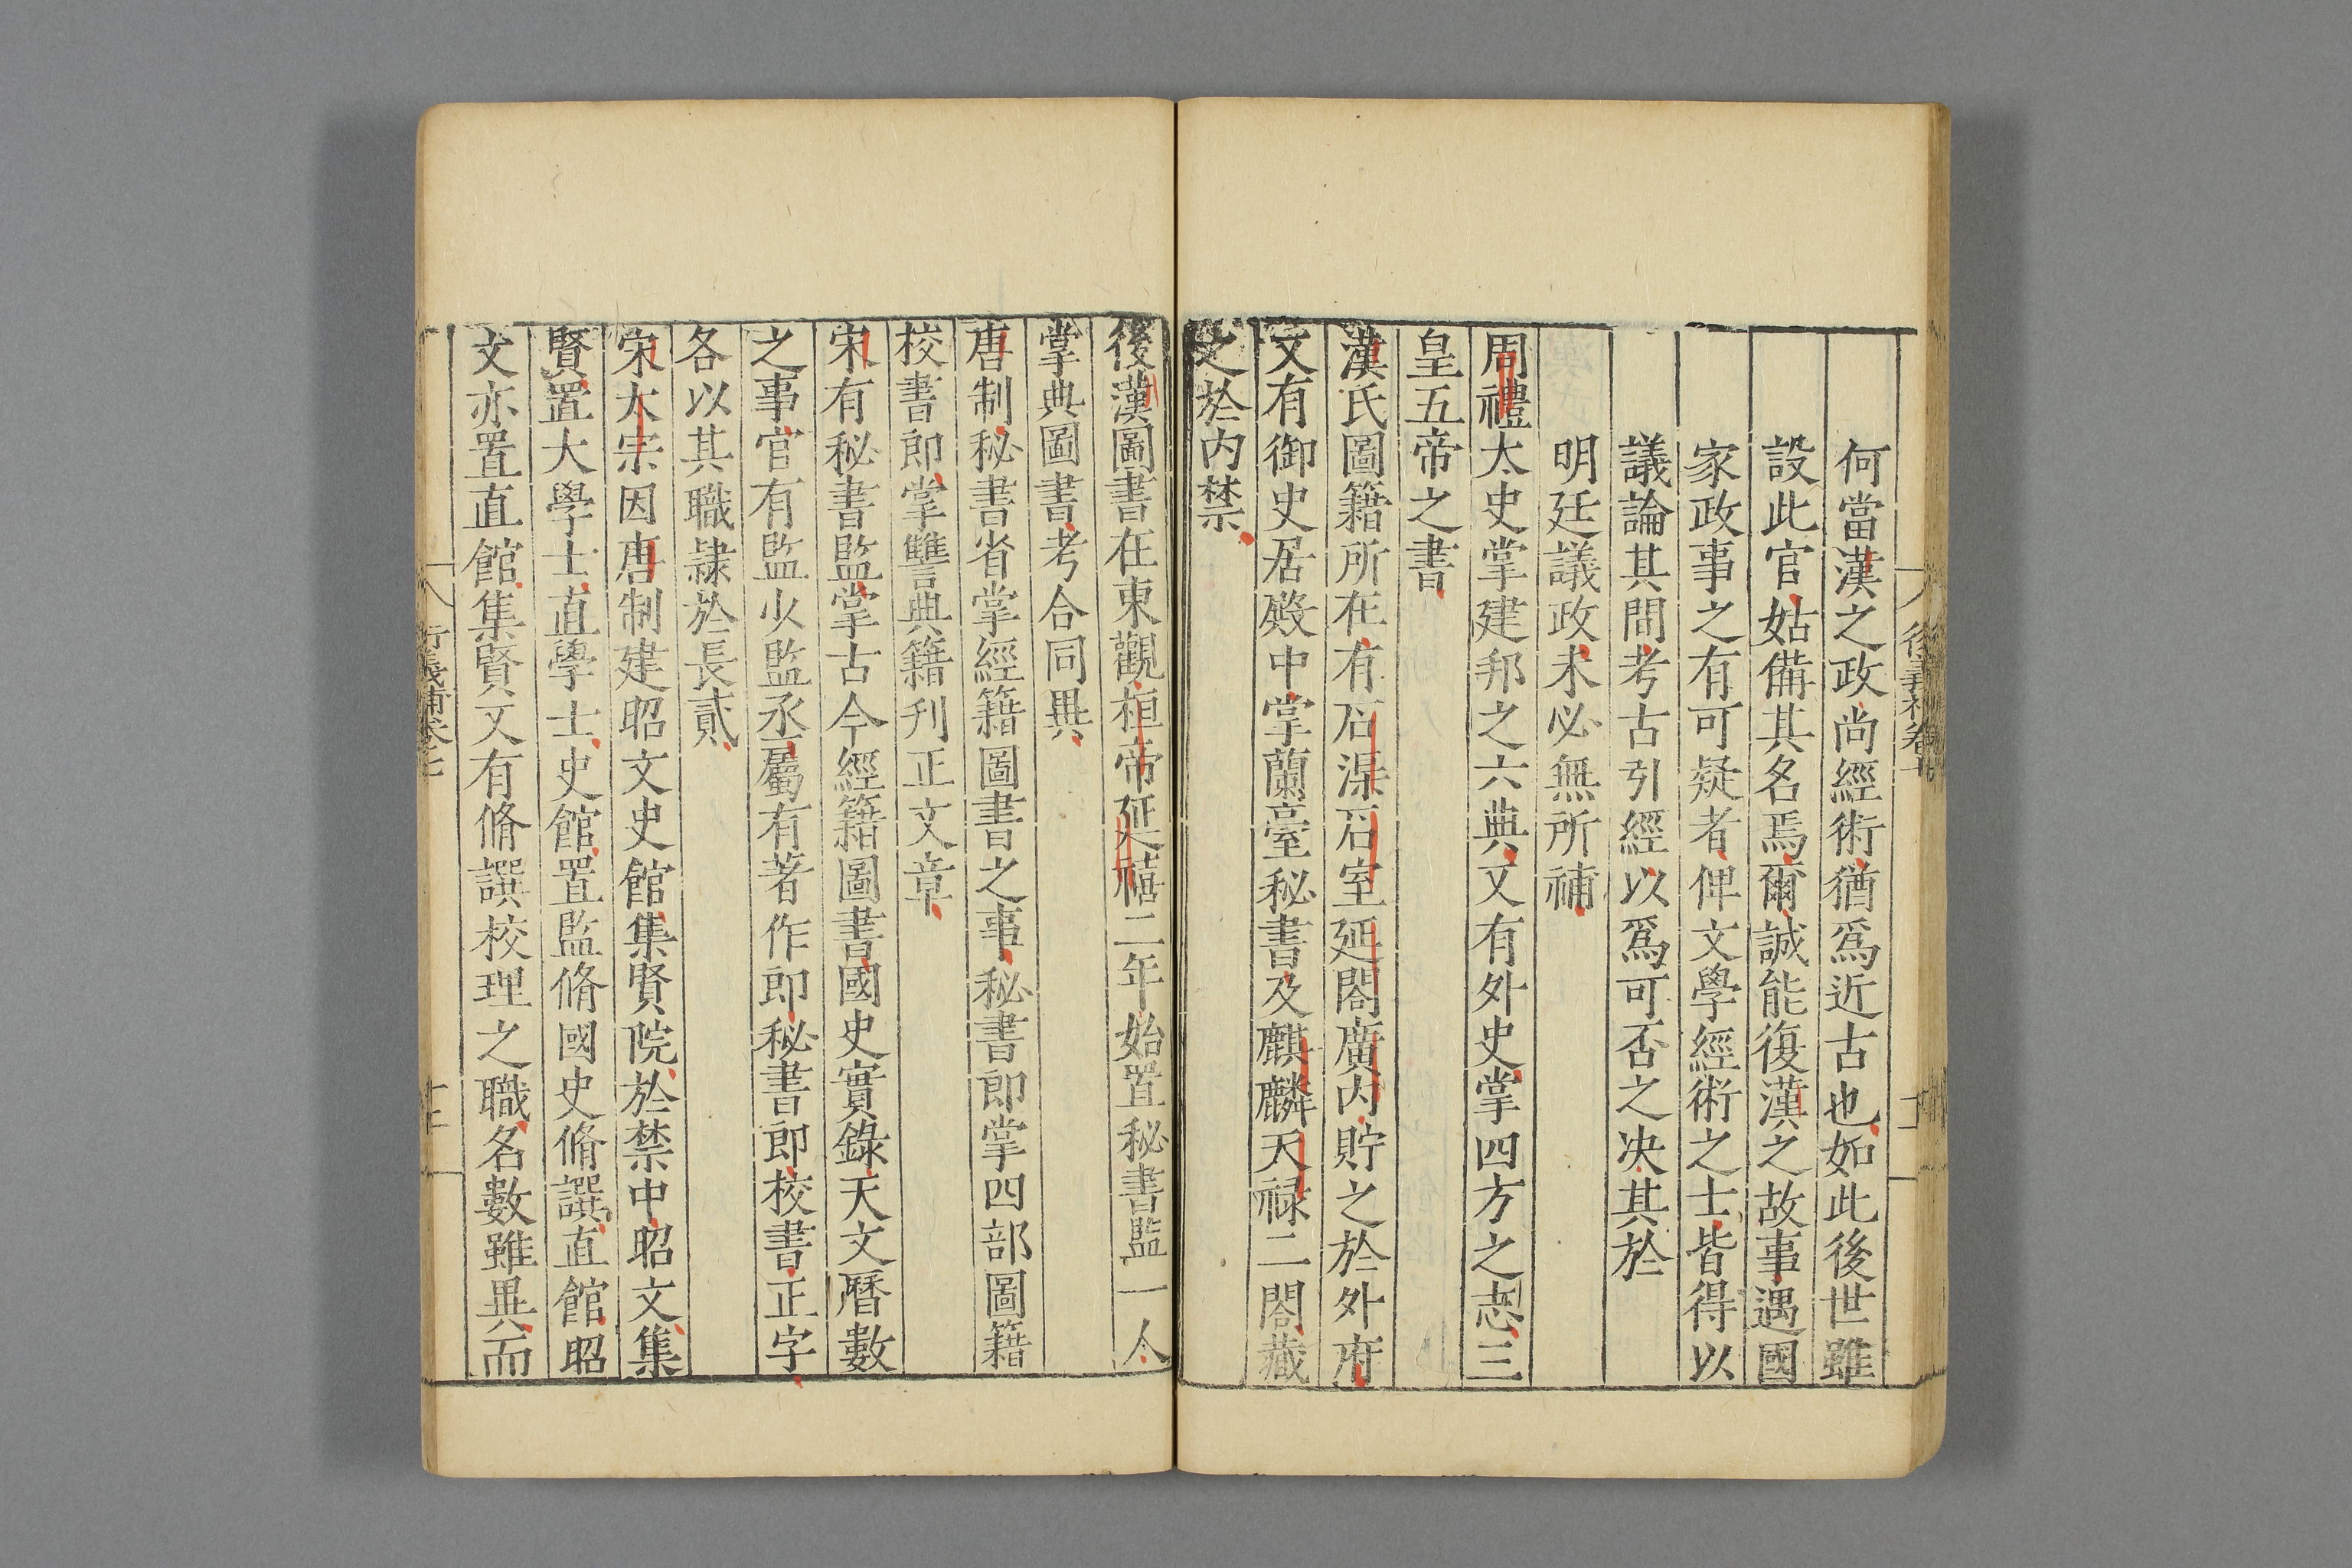 何當漢之政尚經術猶爲近古也如此後世雖
設此官姑備其名焉爾誠能復漢之故事遇國
家政事之有可疑者俾文學經術之士皆得以
議論其間考古引經以爲可否之决其於
明廷議政未必無所補
周禮太史掌建邦之六典又有外史掌四方之志三
皇五帝之書
漢氏圖籍所在有石渠石室延閣廣内貯之於外府
又有御史居殿中掌蘭臺秘書及麒麟天禄二閣藏
之於内禁
後漢圖書在東觀桓帝延禧二年始置秘書監一人
掌典圖書考合同異
唐制秘書省掌經籍圖書之事秘書郎掌四部圖籍
校書郎掌讐典籍刋正文章
宋有秘書監掌古今經籍圖書國史實錄天文曆數
之事官有監少監丞屬有著作郎秘書郎校書正字
各以其職隷於長貳
宋太宗因唐制建昭文史館集賢院於禁中昭文集
賢置大學士直學士史館置監脩國史脩譔直館昭
文亦置直館集賢又有脩譔校理之職名數雖異而